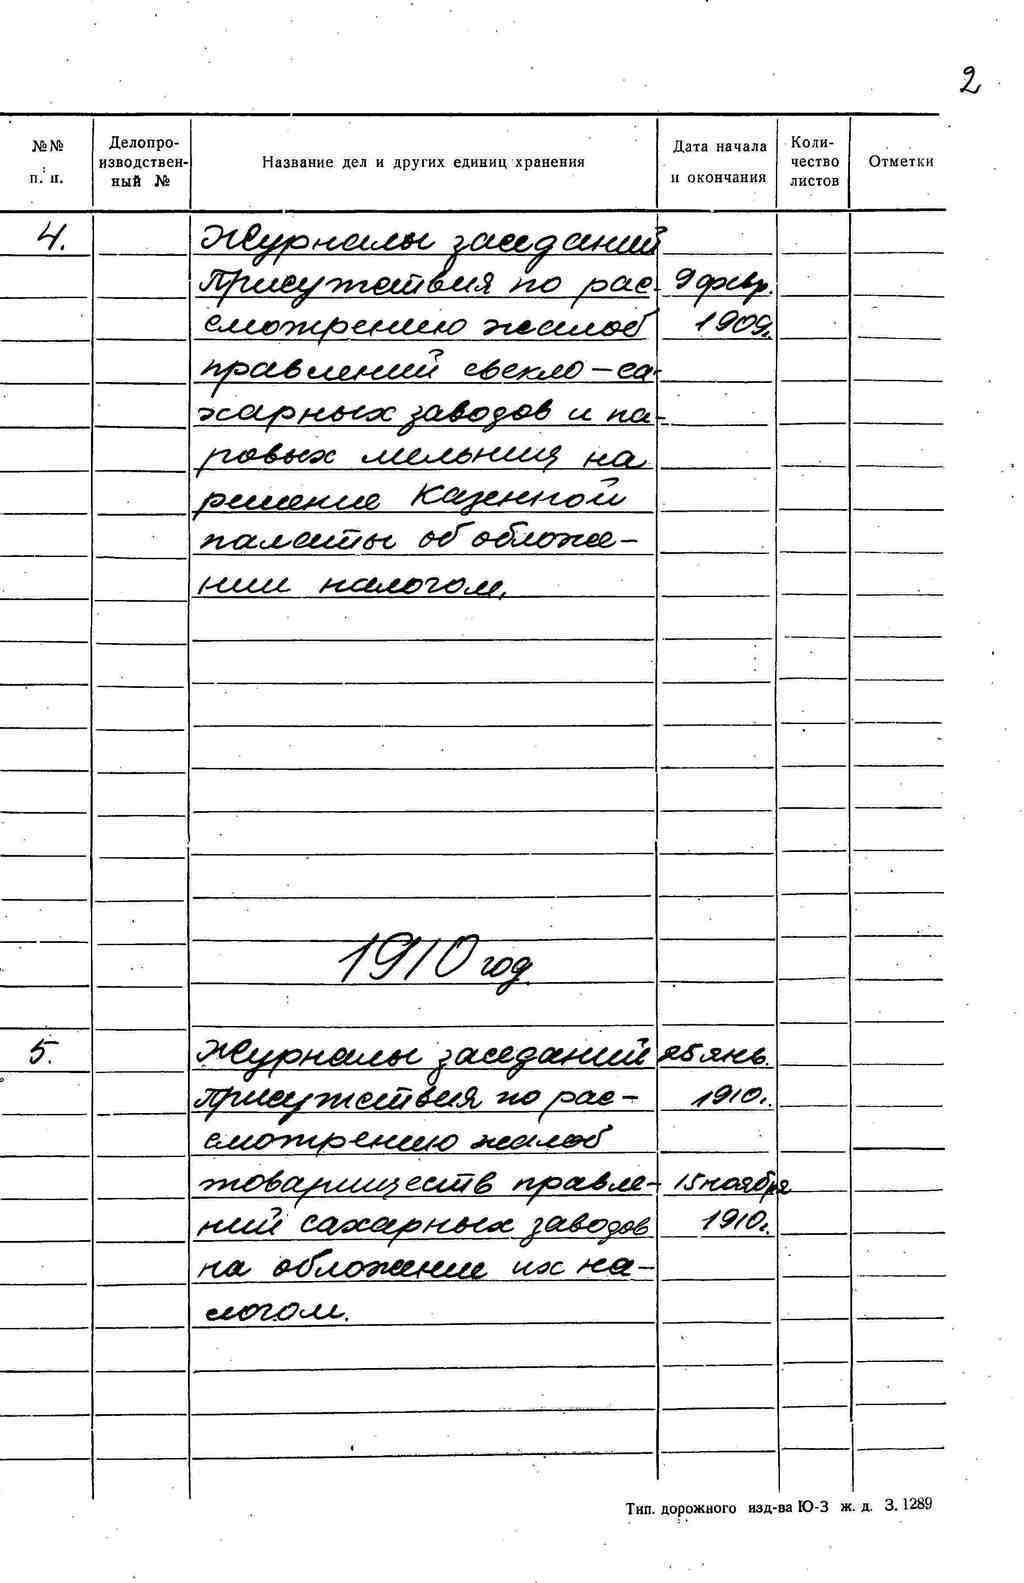 2
№№ п. п. Делопро-изводствен-ный № Название дел и других единиц хранения Дата начала и окончания Коли-чество листов Отметки
4. Журналы заседаний
Присутствия по рас- 9 февр.
смотрению жалоб 1909г.
правлений свекло-са-
харных заводов и па-
ровых мельниц на
решение Казенной
палаты об обложе-
нии налогом.
1910 год.
5. Журналы заседаний 25 янв.
Присутствия по рас- 1910г.
смотрению жалоб
товариществ правле- 15 ноября
ний сахарных заводов 1910г.
на обложение их на-
логом.
Тип. дорожного изд-ва Ю-З ж. д. З. 1289